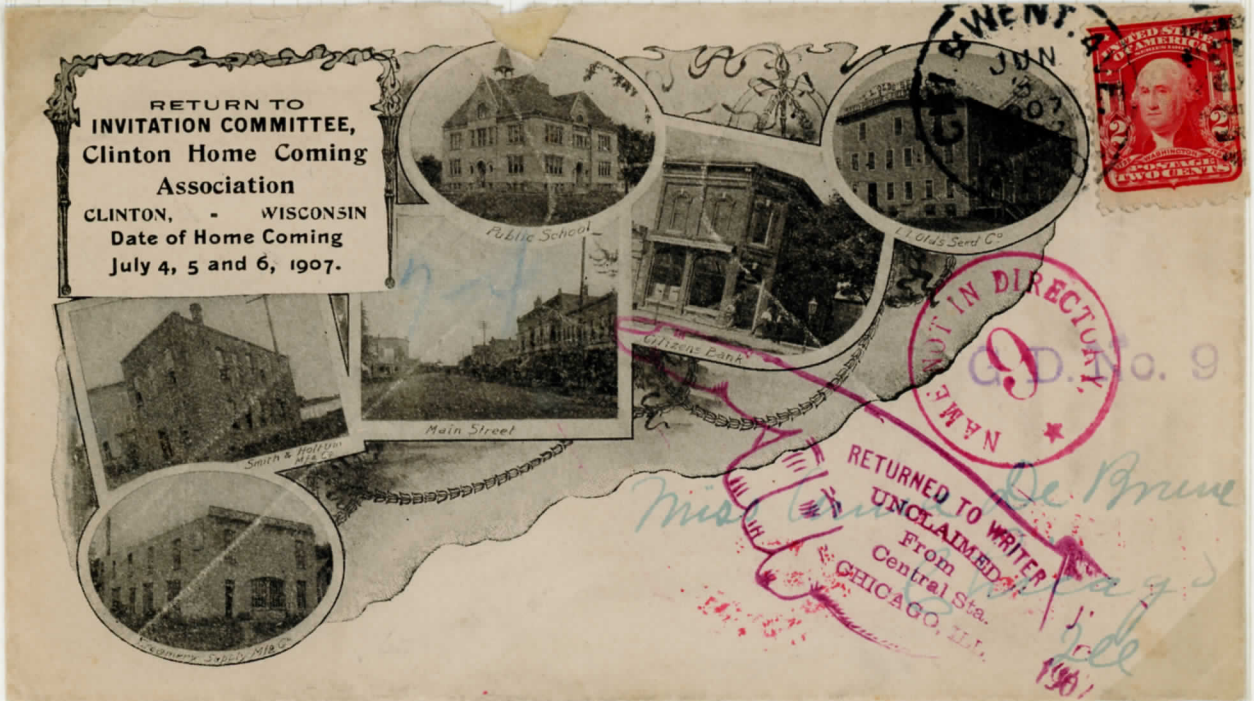 RETURN TO
INVITATION COMMITTEE,
Clinton Home Coming
Association
CLINTON, - WISCONSIN
Date of Home Coming
July 4, 5 and 6, 1907.
Public School
Olds Seed Co
Citizens Bank
Main Street
Smith &
Mfg Co
Supply Mfg Co
WENT.
JUN
UNITED STATES
OF AMERICA
2 2
WASHINGTON
POSTAGE
TWO CENTS
NAME NOT IN DIRECTORY.
9
G. D. No. 9
RETURNED TO WRITER
UNCLAIMED
From
Central Sta.
CHICAGO, ILL.
Miss De Brune
Chicago
Ill
1907